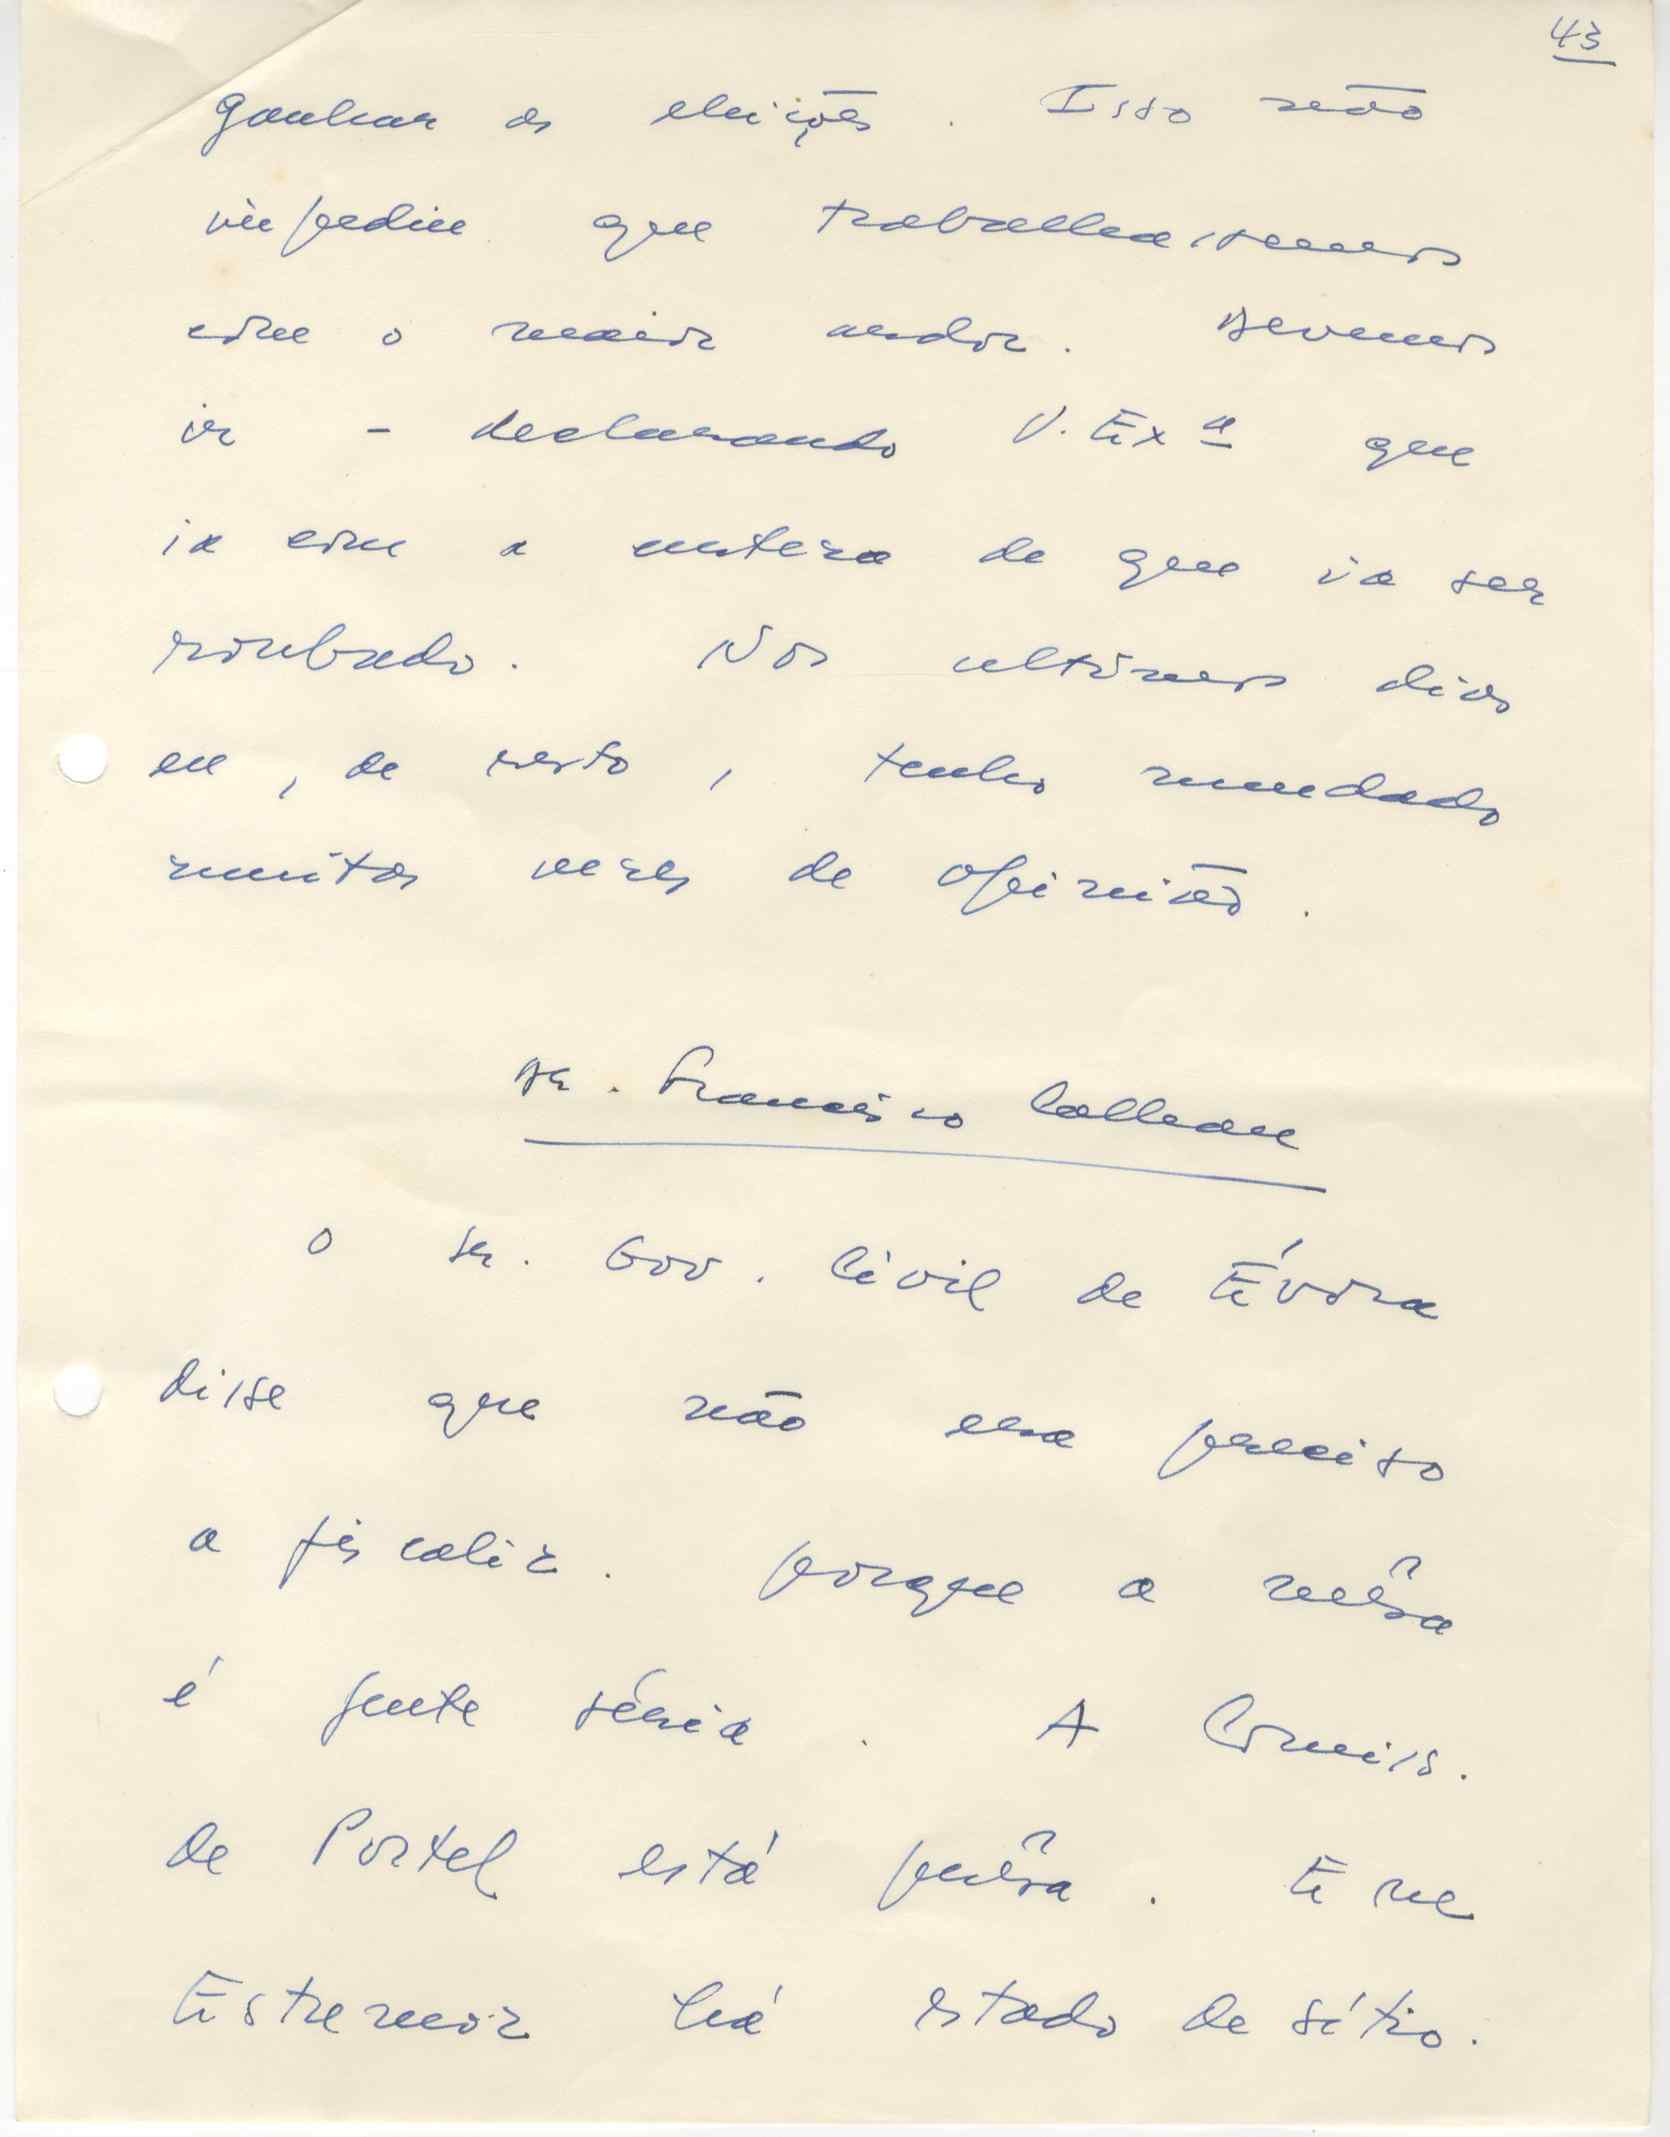 43
ganhar as eleições. Isso não
impediu que trabalhassemos
com o maior ardor. Devemos
ir - declarando V. Exª que
ia com a certeza de que ia ser
roubado. Nos ultimos dias
eu, de resto, tenho mudado
muitas vezes de opinião.
Dr. Francisco Callean
O Sr. Gov. Civil de Évora
disse que não era preciso
a fiscaliz. porque a mêsa
é gente séria. A Comiss.
de Portel está prêsa. Em
Estremoz há estado de sítio.